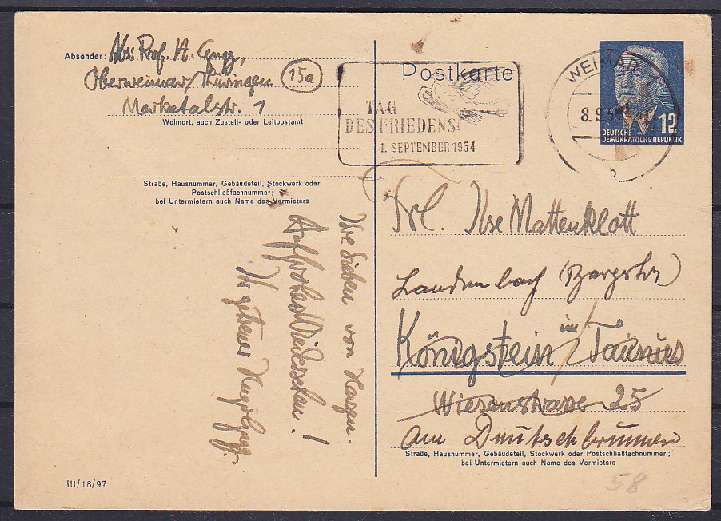 Absender: Abs: Prof. H.
Oberweimar/Thüringen
15a
Marktalstr. 1
Wohnort, auch Zustell- oder Leitpostamt
Straße, Hausnummer, Gebäudeteil, Stockwerk oder
Postschließfachnummer;
bei Untermietern auch Name des Vermieters
Ihre lieben von
Auf frohes Wiedersehen!
Ihr getreuer
III/18/97
Postkarte
TAG
DES FRIEDENS
1. SEPTEMBER 1954
WEIMAR
8.9.
DEUTSCHE
DEMOKRATISCHE REPUBLIK
12
b
Frl. Ilse Mattenklott
Laudenbach (Bergstr)
Königstein im Taunus
Wiesenstrasse 25
am Deutschbrunnen
Straße, Hausnummer, Gebäudeteil, Stockwerk oder Postschließfachnummer;
bei Untermietern auch Name des Vermieters
58